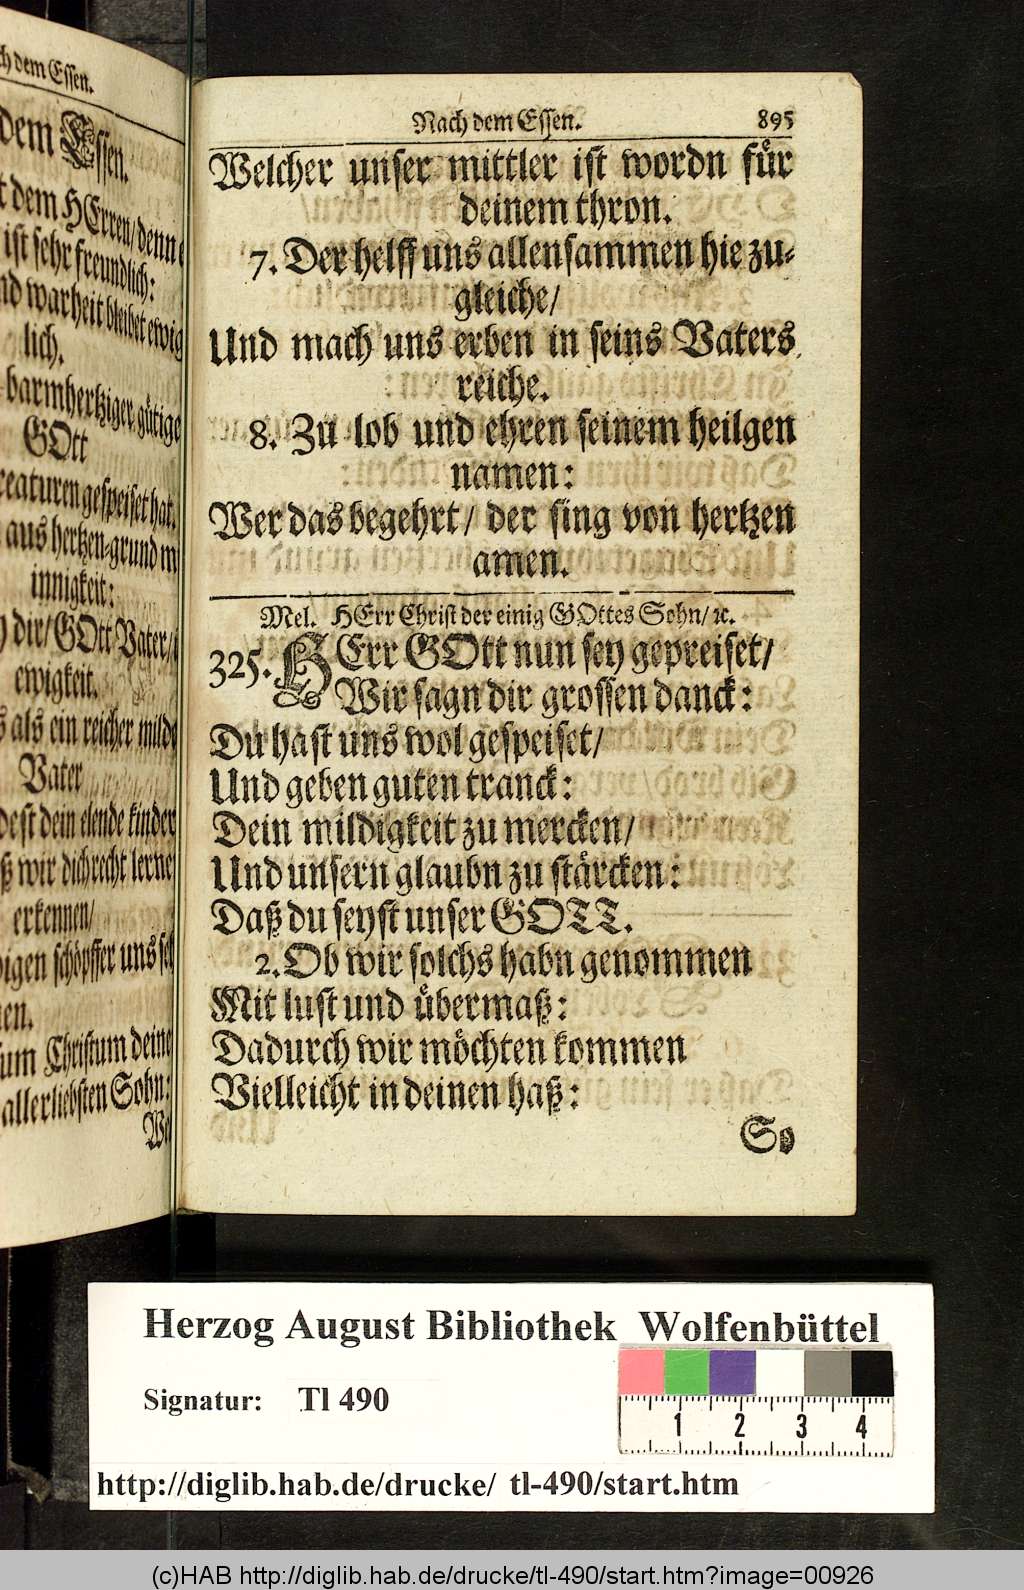 ch dem Essen.
dem Essen.
t dem HErren/ denn
ist sehr freundlich:
nd warheit bleibet ewig
lich.
barmhertziger gütige
GOtt
reaturen gespeiset hat.
aus hertzen-grund
innigkeit:
dir/ GOtt Vater/
ewigkeit.
s als ein reicher milde
Vater
dest dein elende kinder
ß wir dich recht lerne
erkennen/
igen schöpffer uns
en.
um Christum deine
allerliebsten Sohn:
We
Nach dem Essen. 895
Welcher unser mittler ist wordn für
deinem thron.
7. Der helff uns allensammen hie zu-
gleiche/
Und mach uns erben in seins Vaters
reiche.
8. Zu lob und ehren seinem heilgen
namen:
Wer das begehrt/ der sing von hertzen
amen.
Mel. HErr Christ der einig GOttes Sohn/ ꝛc.
325. HErr GOtt nun sey gepreiset/
Wir sagn dir grossen danck:
Du hast uns wol gespeiset/
Und geben guten tranck:
Dein mildigkeit zu mercken/
Und unsern glaubn zu stärcken:
Daß du seyst unser GOTT.
2. Ob wir solchs habn genommen
Mit lust und übermaß:
Dadurch wir möchten kommen
Vielleicht in deinen haß:
So
Herzog August Bibliothek Wolfenbüttel
Signatur: Tl 490
1 2 3 4
http://diglib.hab.de/drucke/ tl-490/start.htm
(c)HAB http://diglib.hab.de/drucke/tl-490/start.htm?image=00926